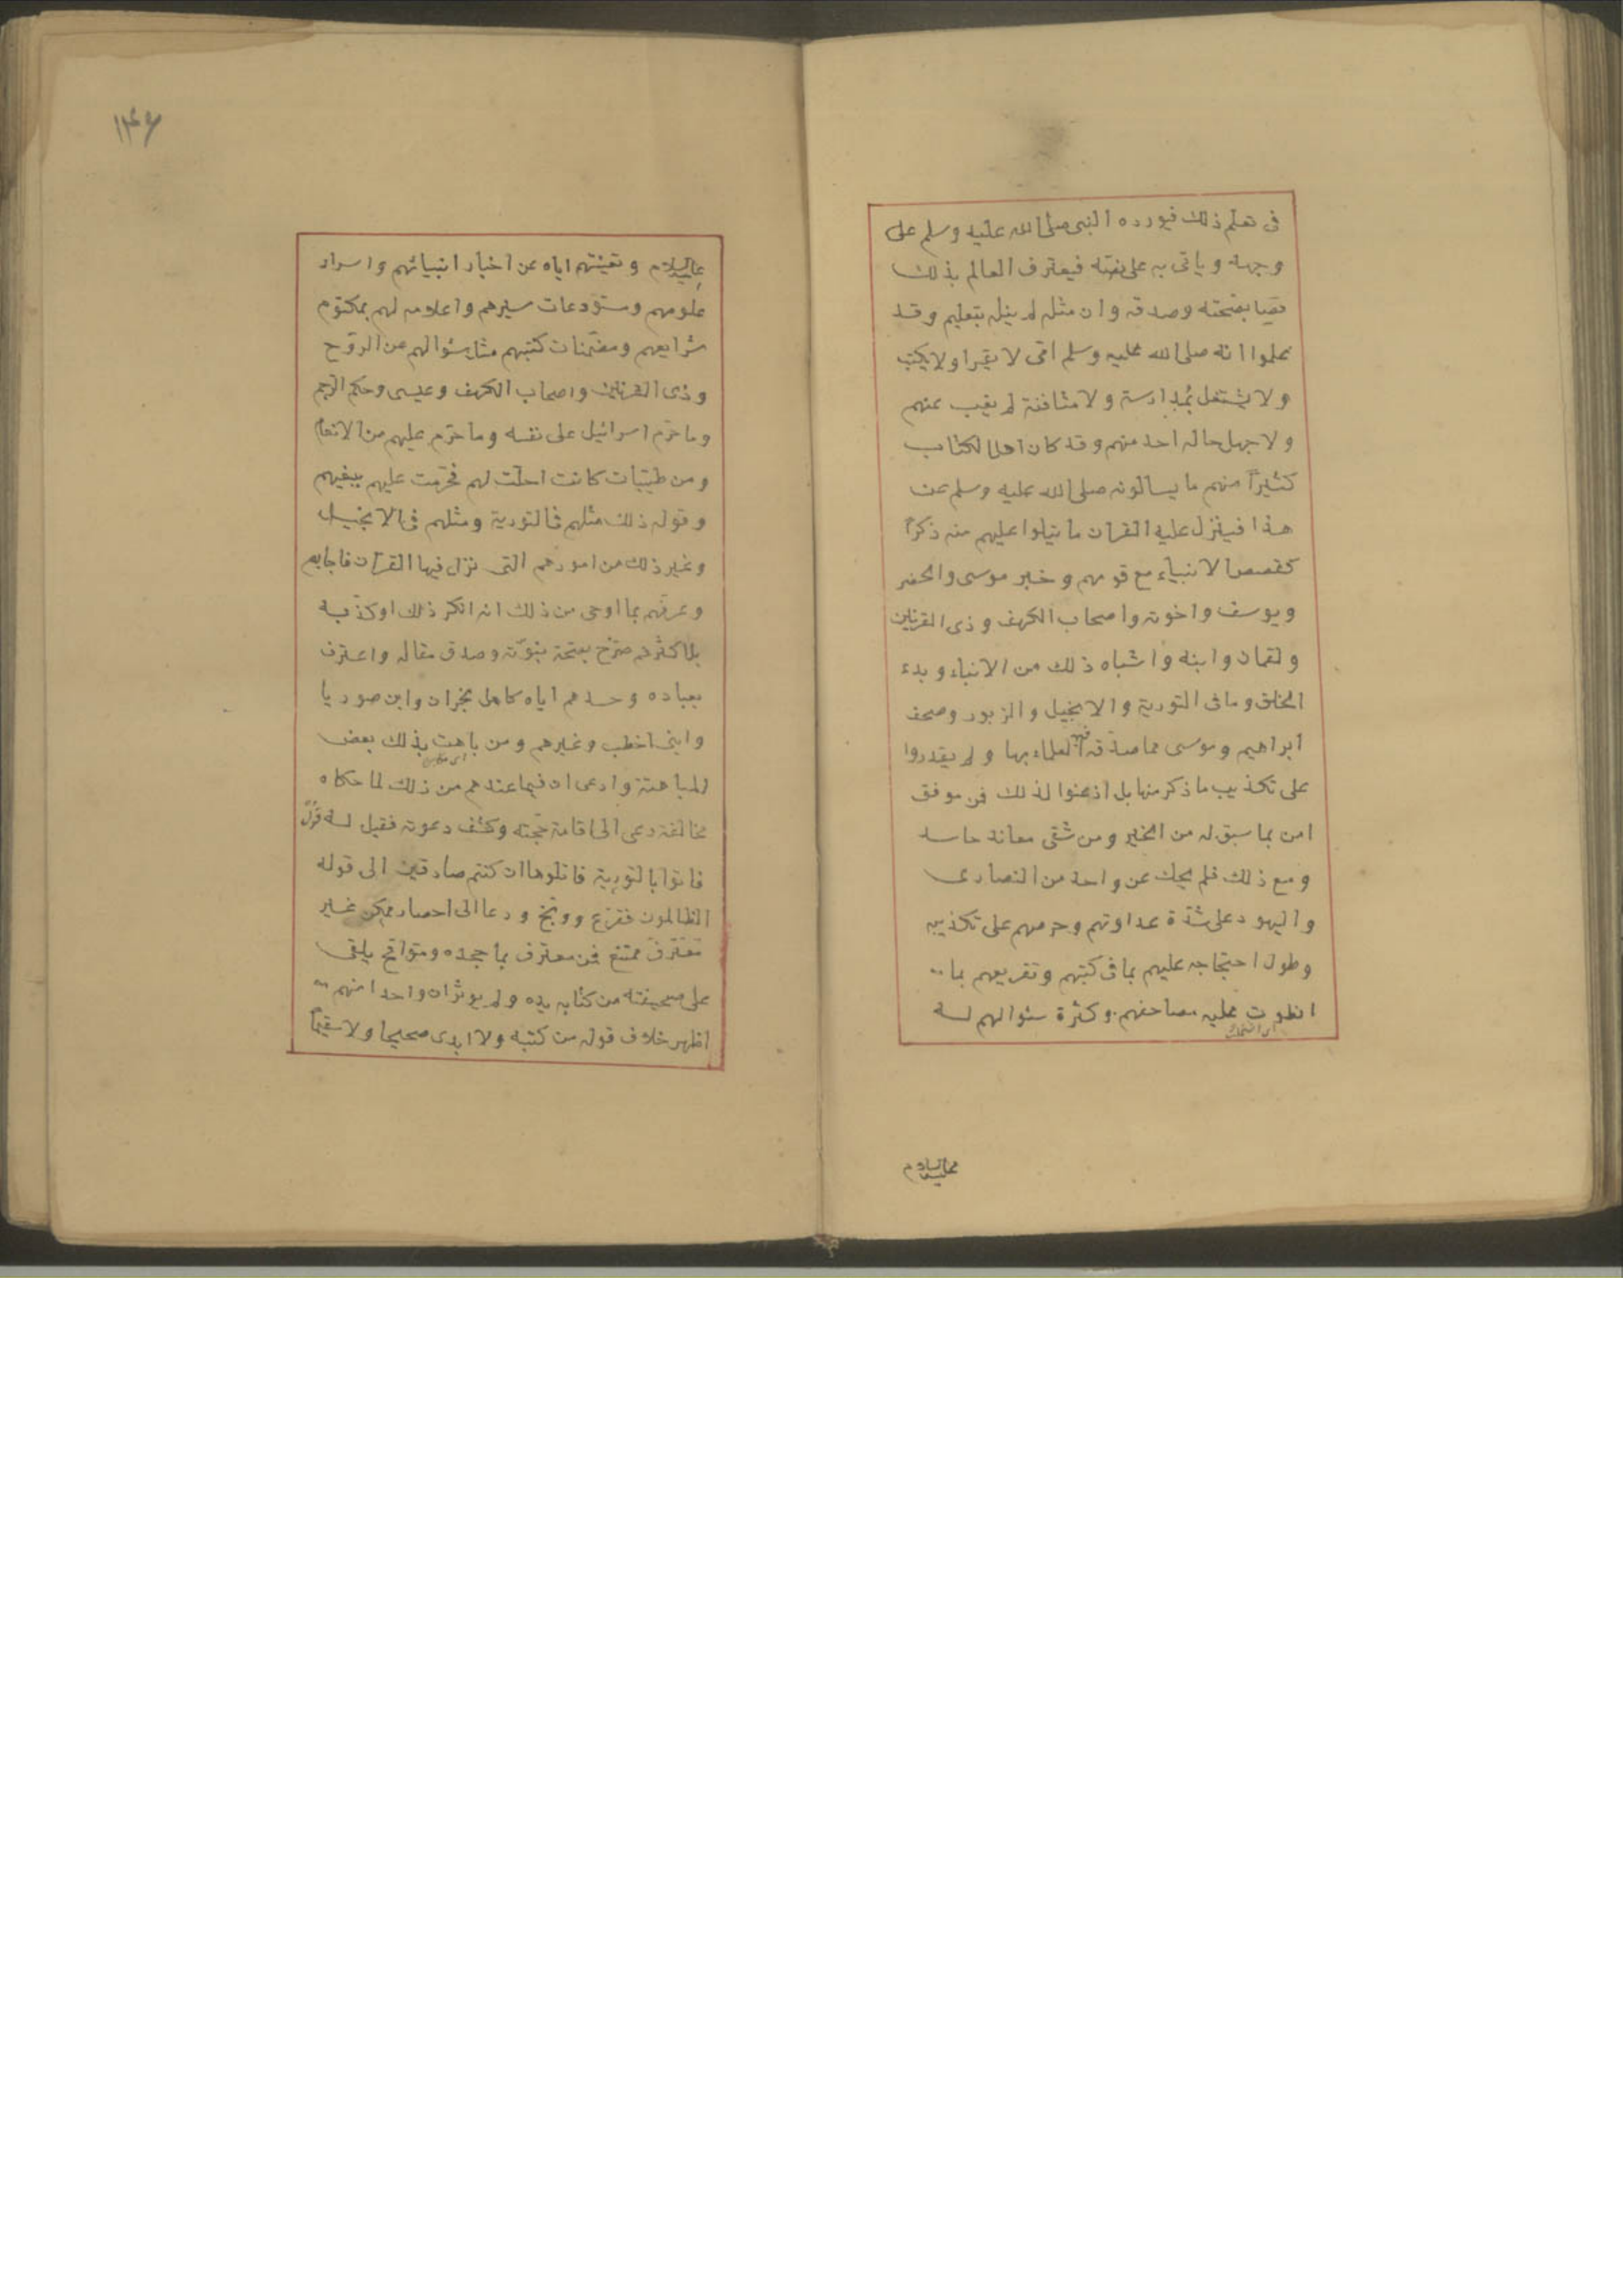 فى تعلم ذلك فيورده النبى صلى الله عليه وسلم على
وجهه وياتى به على نصه فيعترف العالم بذلك
بصحته وصدقه وان مثله لم ينله بتعليم وقد
علموا انه صلى الله عليه وسلم امى لا يقرا ولا يكتب
ولا يشتغل بمدارسة ولا مثافنة لم يغب عنهم
ولا جهل حاله احد منهم وقد كان اهل الكتاب
كثيراً منهم ما يسالونه صلى الله عليه وسلم عن
هذا فينزل عليه القران ما يتلوا عليهم منه ذكراً
كقصص الانبياء مع قومهم وخبر موسى والخضر
ويوسف واخوته واصحاب الكهف وذى القرنين
ولقمان وابنه واشباه ذلك من الانباء وبدء
الخلق وما فى التورية والانجيل والزبور وصحف
ابراهيم وموسى مما صدقه فيه العلماء بها ولم يقدروا
على تكذيب ما ذكر منها بل اذعنوا لذلك فمن موفق
امن بما سبق له من الخير ومن شقى معاند حاسد
ومع ذلك فلم يحك عن واحد من النصارى
واليهود على شدة عداوتهم وحرصهم على تكذيبه
وطول احتجاجه عليهم بما فى كتبهم وتقريعهم بما
انطوت عليه مصاحفهم وكثرة سئوالهم له
عليه السلام
١٣٦
عليه السلام وتعنيتهم اياه عن اخبار انبيائهم واسرار
علومهم ومستودعات سيرهم واعلامه لهم بمكتوم
شرايعهم ومضمنات كتبهم مثل سئوالهم عن الروح
وذى القرنين واصحاب الكهف وعيسى وحكم الرجم
وما حرم اسرائيل على نفسه وما حرم عليهم من الانعام
ومن طيبات كانت احلت لهم فحرمت عليهم ببغيهم
وقوله ذلك مثلهم فى التورية ومثلهم فى الانجيل
وغير ذلك من امورهم التى نزل فيها القران فاجابهم
وعرفهم بما اوحى من ذلك انه انكر ذلك او كذبه
بل اكثرهم صرح بصحة نبوته وصدق مقاله واعترف
بعناده وحسدهم اياه كاهل نجران وابن صوريا
وابنى اخطب وغيرهم ومن باهت بذلك بعض
المباهتة وادعى ان فيما عندهم من ذلك لما حكاه
مخالفة دعى الى اقامة حجته وكشف دعوته فقيل له قل
فاتوا بالتورية فاتلوها ان كنتم صادقين الى قوله
الظالمون فقرع ووبخ ودعا الى احضار ممكن غير
ممتنع فمن معترف بما جحده ومتواقح يلقى
على صحيفته من كتابه يده ولم يوثر ان واحدا منهم
اظهر خلاف قوله من كتبه ولا ابدى صحيحا ولا سقيماً